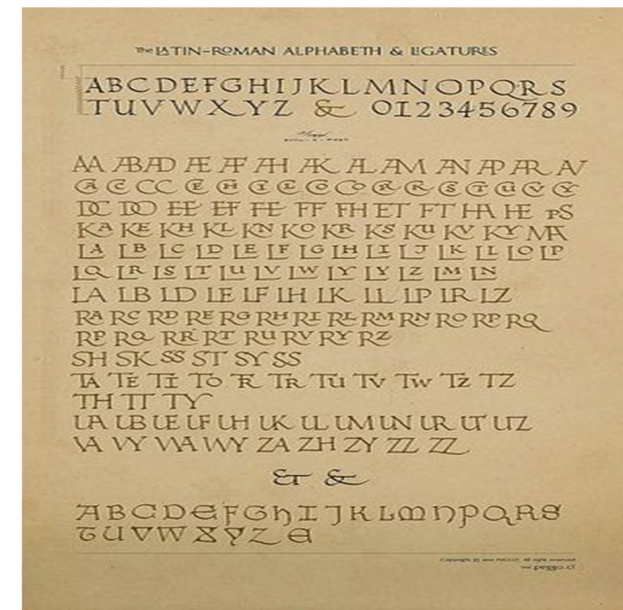 The LATIN-ROMAN ALPHABETH & LIGATURES
ABCDEFGHIJKLMNOPQRS
TUVWXYZ & 0123456789
AA AB AD AE AF AH AK AL AM AN AP AR AV
DC DO EE EF FE FF FH ET FT HA HE PS
KA KE KH KL KN KO KR KS KU KV KY MA
LA LB LC LD LE LF LG LH LI LJ LK LL LO LP
LQ LR LS LT LU LV LW LY LY LZ LM LN
LA LB LD LE LF LH LK LL LP LR LZ
RA RC RD RE RG RH RI RL RM RN RO RP RQ
RP RQ RR RT RU RV RY RZ
SH SK SS ST SY SS
TA TE TI TO TR TR TU TV TW TZ TZ
TH TT TY
UA UB UE UF UH UK UL UM UN UR UT UZ
VA VY WA WY ZA ZH ZY ZZ ZZ
& &
ABCDEFGHIJKLMNPQRS
TUVWXYZE
Copyright © PEGGO. All right reserved.
peggo.cl